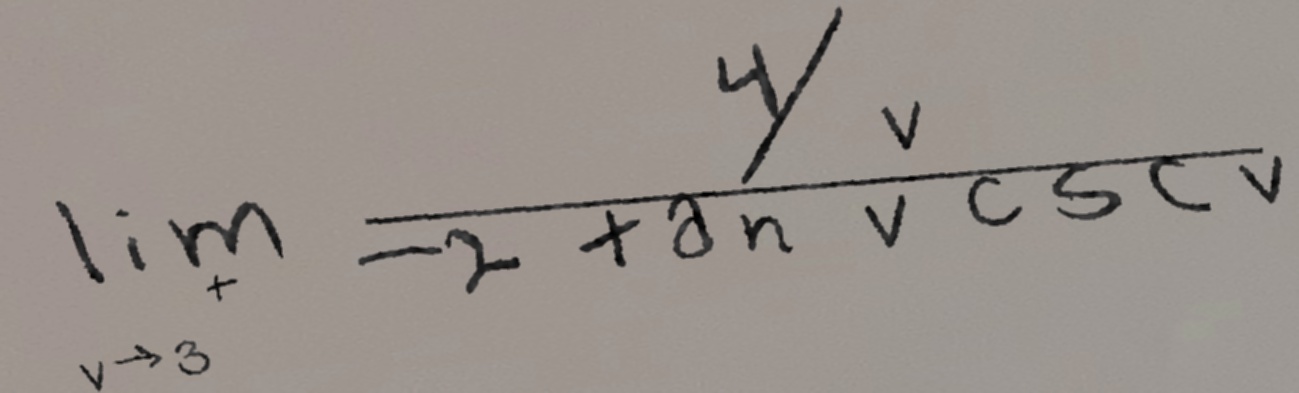 lim_{v→3^+} \frac{4/v}{-2 \tan v \csc v}